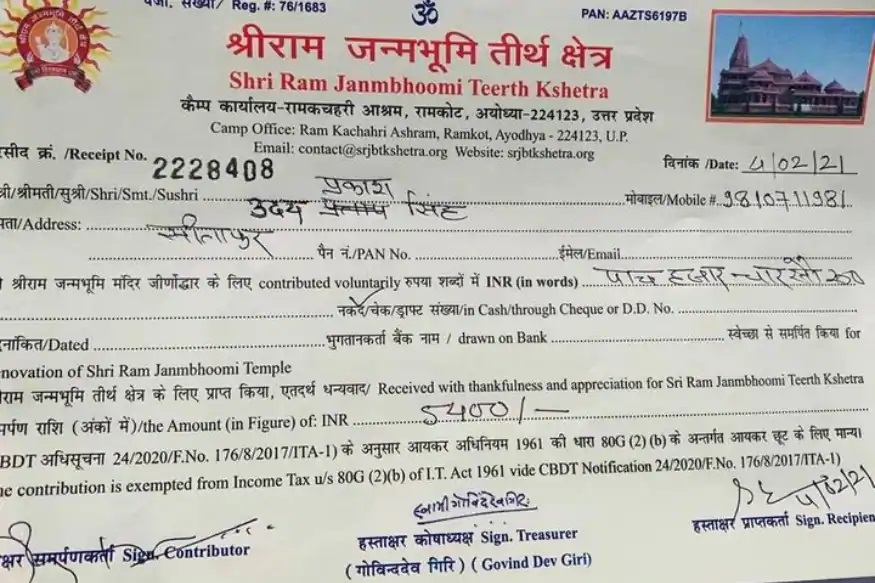 पंजी. संख्या/ Reg. #: 76/1683
ॐ
PAN: AAZTS6197B
श्रीराम जन्मभूमि तीर्थ क्षेत्र
Shri Ram Janmbhoomi Teerth Kshetra
कैम्प कार्यालय-रामकचहरी आश्रम, रामकोट, अयोध्या-224123, उत्तर प्रदेश
Camp Office: Ram Kachahri Ashram, Ramkot, Ayodhya - 224123, U.P.
Email: contact@srjbtkshetra.org Website: srjbtkshetra.org
सीद क्रं. /Receipt No. 2228408
दिनांक /Date: 4/02/21
प्रकाश
श्री/श्रीमती/सुश्री/Shri/Smt./Sushri उदय प्रताप सिंह मोबाइल/Mobile # 9810711981
पता/Address: सीतापुर
पैन नं./PAN No. ईमेल/Email
श्रीराम जन्मभूमि मंदिर जीर्णोद्धार के लिए contributed voluntarily रुपया शब्दों में INR (in words) पांच हजार चारसौ
नकद/चेक/ड्राफ्ट संख्या/in Cash/through Cheque or D.D. No.
नांकित/Dated भुगतानकर्ता बैंक नाम / drawn on Bank स्वेच्छा से समर्पित किया for
novation of Shri Ram Janmbhoomi Temple
राम जन्मभूमि तीर्थ क्षेत्र के लिए प्राप्त किया, एतदर्थ धन्यवाद/ Received with thankfulness and appreciation for Sri Ram Janmbhoomi Teerth Kshetra
र्पण राशि (अंकों में)/the Amount (in Figure) of: INR 5400/-
BDT अधिसूचना 24/2020/F.No. 176/8/2017/ITA-1) के अनुसार आयकर अधिनियम 1961 की धारा 80G (2) (b) के अन्तर्गत आयकर छूट के लिए मान्य।
e contribution is exempted from Income Tax u/s 80G (2)(b) of I.T. Act 1961 vide CBDT Notification 24/2020/F.No. 176/8/2017/ITA-1)
स्वामी गोविंददेव गिरि
4/02/21
क्षर समर्पणकर्ता Sign. Contributor
हस्ताक्षर कोषाध्यक्ष Sign. Treasurer
हस्ताक्षर प्राप्तकर्ता Sign. Recipien
(गोविन्ददेव गिरि) (Govind Dev Giri)